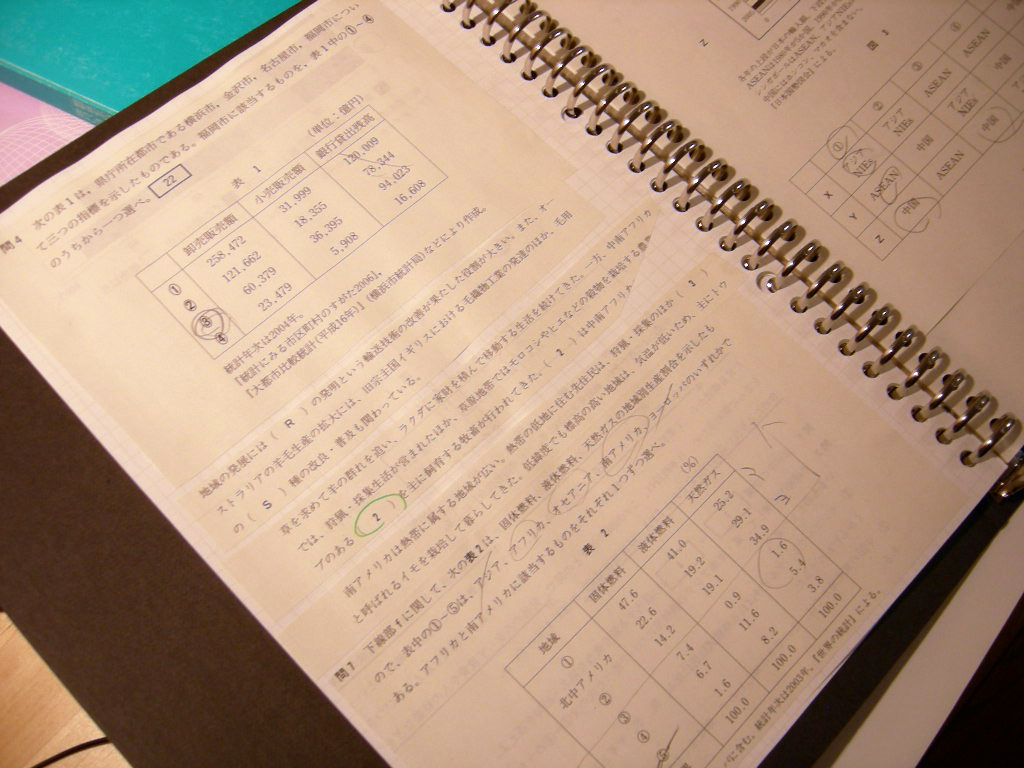 問4 次の表1は，県庁所在都市である横浜市，金沢市，名古屋市，福岡市につい
て三つの指標を示したものである。福岡市に該当するものを，表1中の①～④
のうちから一つ選べ。 22
表 1
(単位：億円)
卸売販売額 小売販売額 銀行貸出残高
① 258,472 31,999 120,009
② 121,662 18,355 78,344
③ 60,379 36,395 94,023
④ 23,479 5,908 16,608
統計年次は2004年。
『統計にみる市区町村のすがた2006』，
『大都市比較統計(平成16年)』(横浜市統計局)などにより作成。
地域の発展には( R )の発明という輸送技術の改善が果たした役割が大きい。また，オー
ストラリアの羊毛生産の拡大には，旧宗主国イギリスにおける毛織物工業の発達のほか，毛用
の( S )種の改良・普及も関わっている。
草を求めて羊の群れを追い，ラクダに家財を積んで移動する生活を続けてきた。一方，中南アフリカ
では，狩猟・採集生活が営まれたほか，草原地帯ではモロコシやヒエなどの穀物を栽培する農
プのある( 2 )を主に飼育する牧畜が行われてきた。( 2 )は中南アフリカ
南アメリカは熱帯に属する地域が広い。熱帯の低地に住む先住民は，狩猟・採集のほか( 3 )
と呼ばれるイモを栽培して暮らしてきた。低緯度でも標高の高い地域は，気温が低いため，主にトウ
問7 下線部fに関して，次の表2は，固体燃料，液体燃料，天然ガスの地域別生産割合を示したも
ので，表中の①～⑤は，アジア，アフリカ，オセアニア，南アメリカ，ヨーロッパのいずれかで
ある。アフリカと南アメリカに該当するものをそれぞれ1つずつ選べ。
表 2
(%)
地域 固体燃料 液体燃料 天然ガス
① 47.6 41.0 25.2
北中アメリカ 22.6 19.2 29.1
② 14.2 19.1 34.9
③ 7.4 0.9 1.6
④ 6.7 11.6 5.4
⑤ 1.6 8.2 3.8
100.0 100.0 100.0
に含む。統計年次は2003年。『世界の統計』による。
Z
図 3
① ② ③ ④
X アジアNIEs アジアNIEs ASEAN ASEAN
Y ASEAN 中国 アジアNIEs 中国
Z 中国 ASEAN 中国